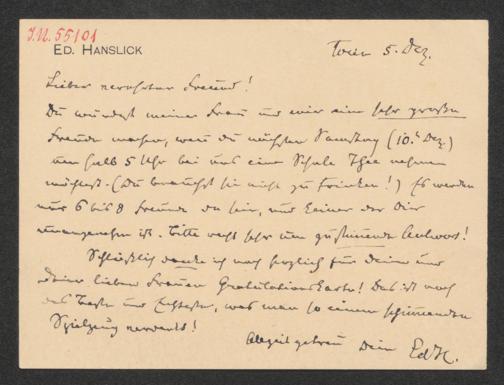 I.N. 55101
ED. HANSLICK
Wien 5. Dez.
Lieber verehrter Freund!
Du würdest meiner Frau und mir eine sehr große
Freude machen, wenn du nächsten Samstag (10. Dez.)
um halb 5 Uhr bei uns eine Schale Thee nehmen
möchtest. (Du brauchst sie nicht zu trinken!) Es werden
nur 6 bis 8 Freunde da sein, und keiner der Dir
unangenehm ist. Bitte recht sehr um zustimmende Antwort!
Schließlich danke ich noch herzlich für Deine und
Deiner lieben Frauen Gratulationskarte! Das ist noch
das Beste und Echteste, was man so einem
Spielzeug verdankt!
Allzeit getreu Dein Ed H.